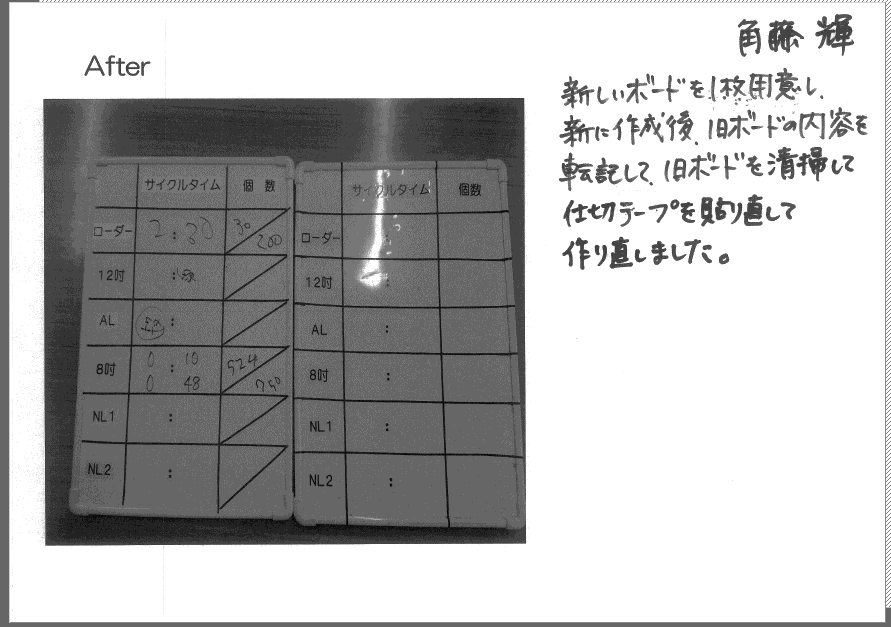 角藤 輝
After
新しいボードを1枚用意し、
新に作成後、旧ボードの内容を
転記して、旧ボードを清掃して
仕切テープを貼り直して
作り直しました。
サイクルタイム 個 数
ローダー 2:30 30 200
12吋 :
AL :
8吋 0 : 10 524
0 48 750
NL1 :
NL2 :
サイクルタイム 個数
ローダー :
12吋 :
AL :
8吋 :
NL1 :
NL2 :